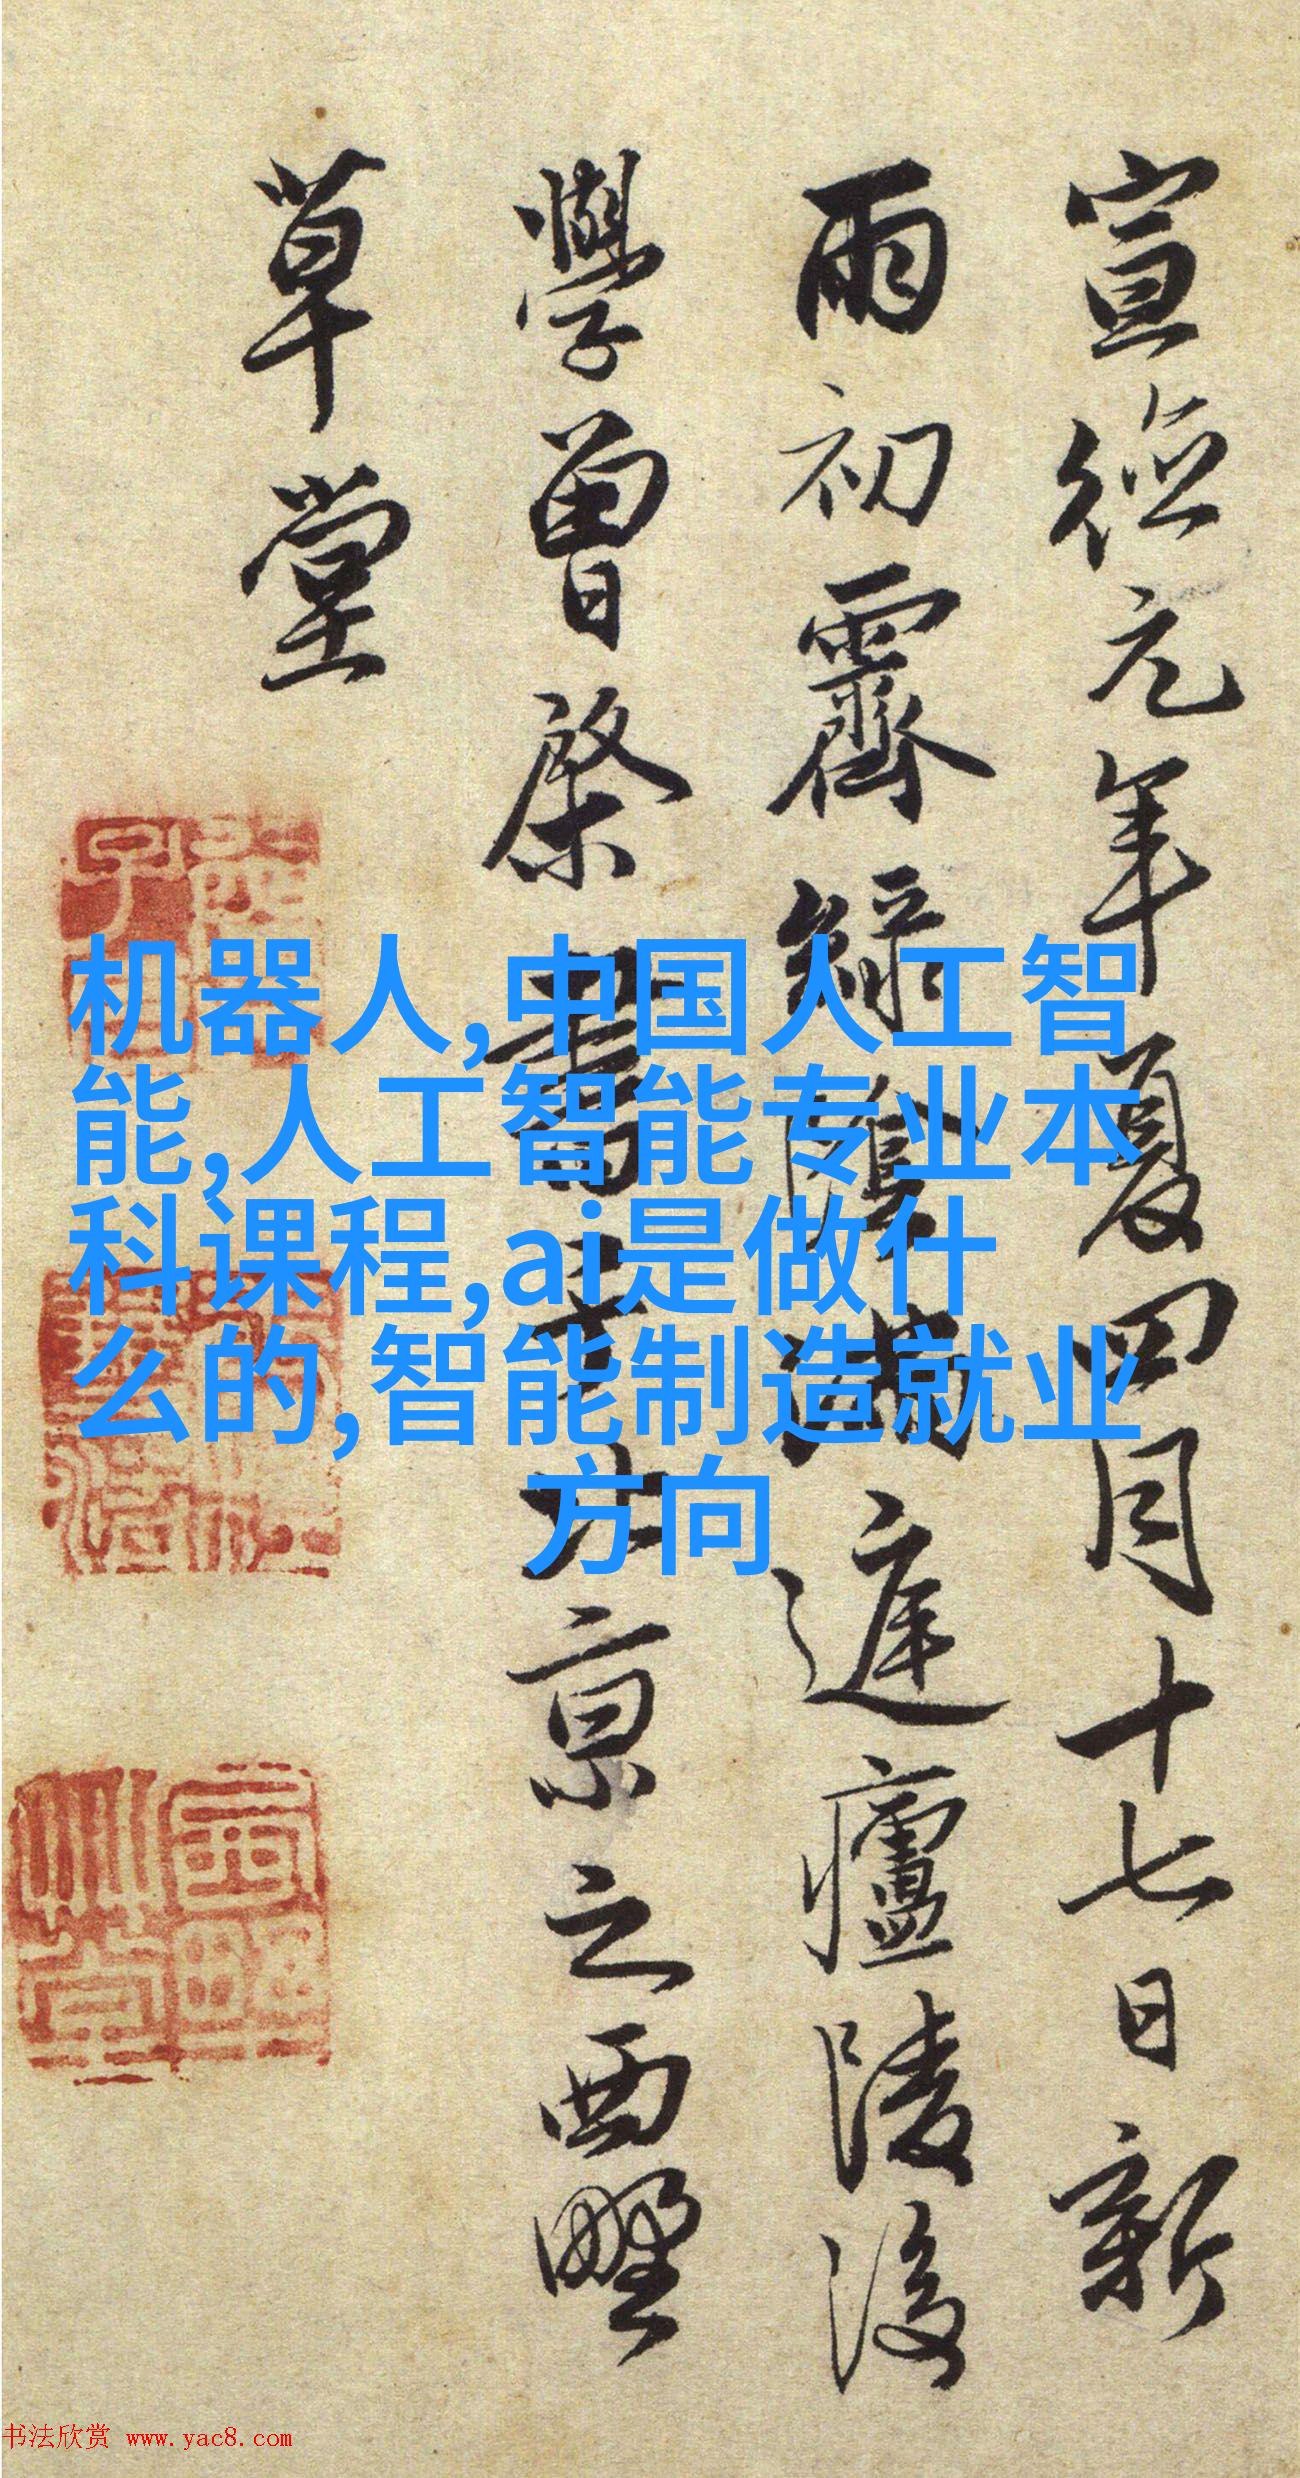 宣德元年夏四月十七日新
雨初霽緑陰满庭廬陵後
學曾棨書于北京之西墅
草堂
机器人,中国人工智
能,人工智能专业本
科课程,ai是做什
么的,智能制造就业
方向
书法欣赏 www.yac8.com